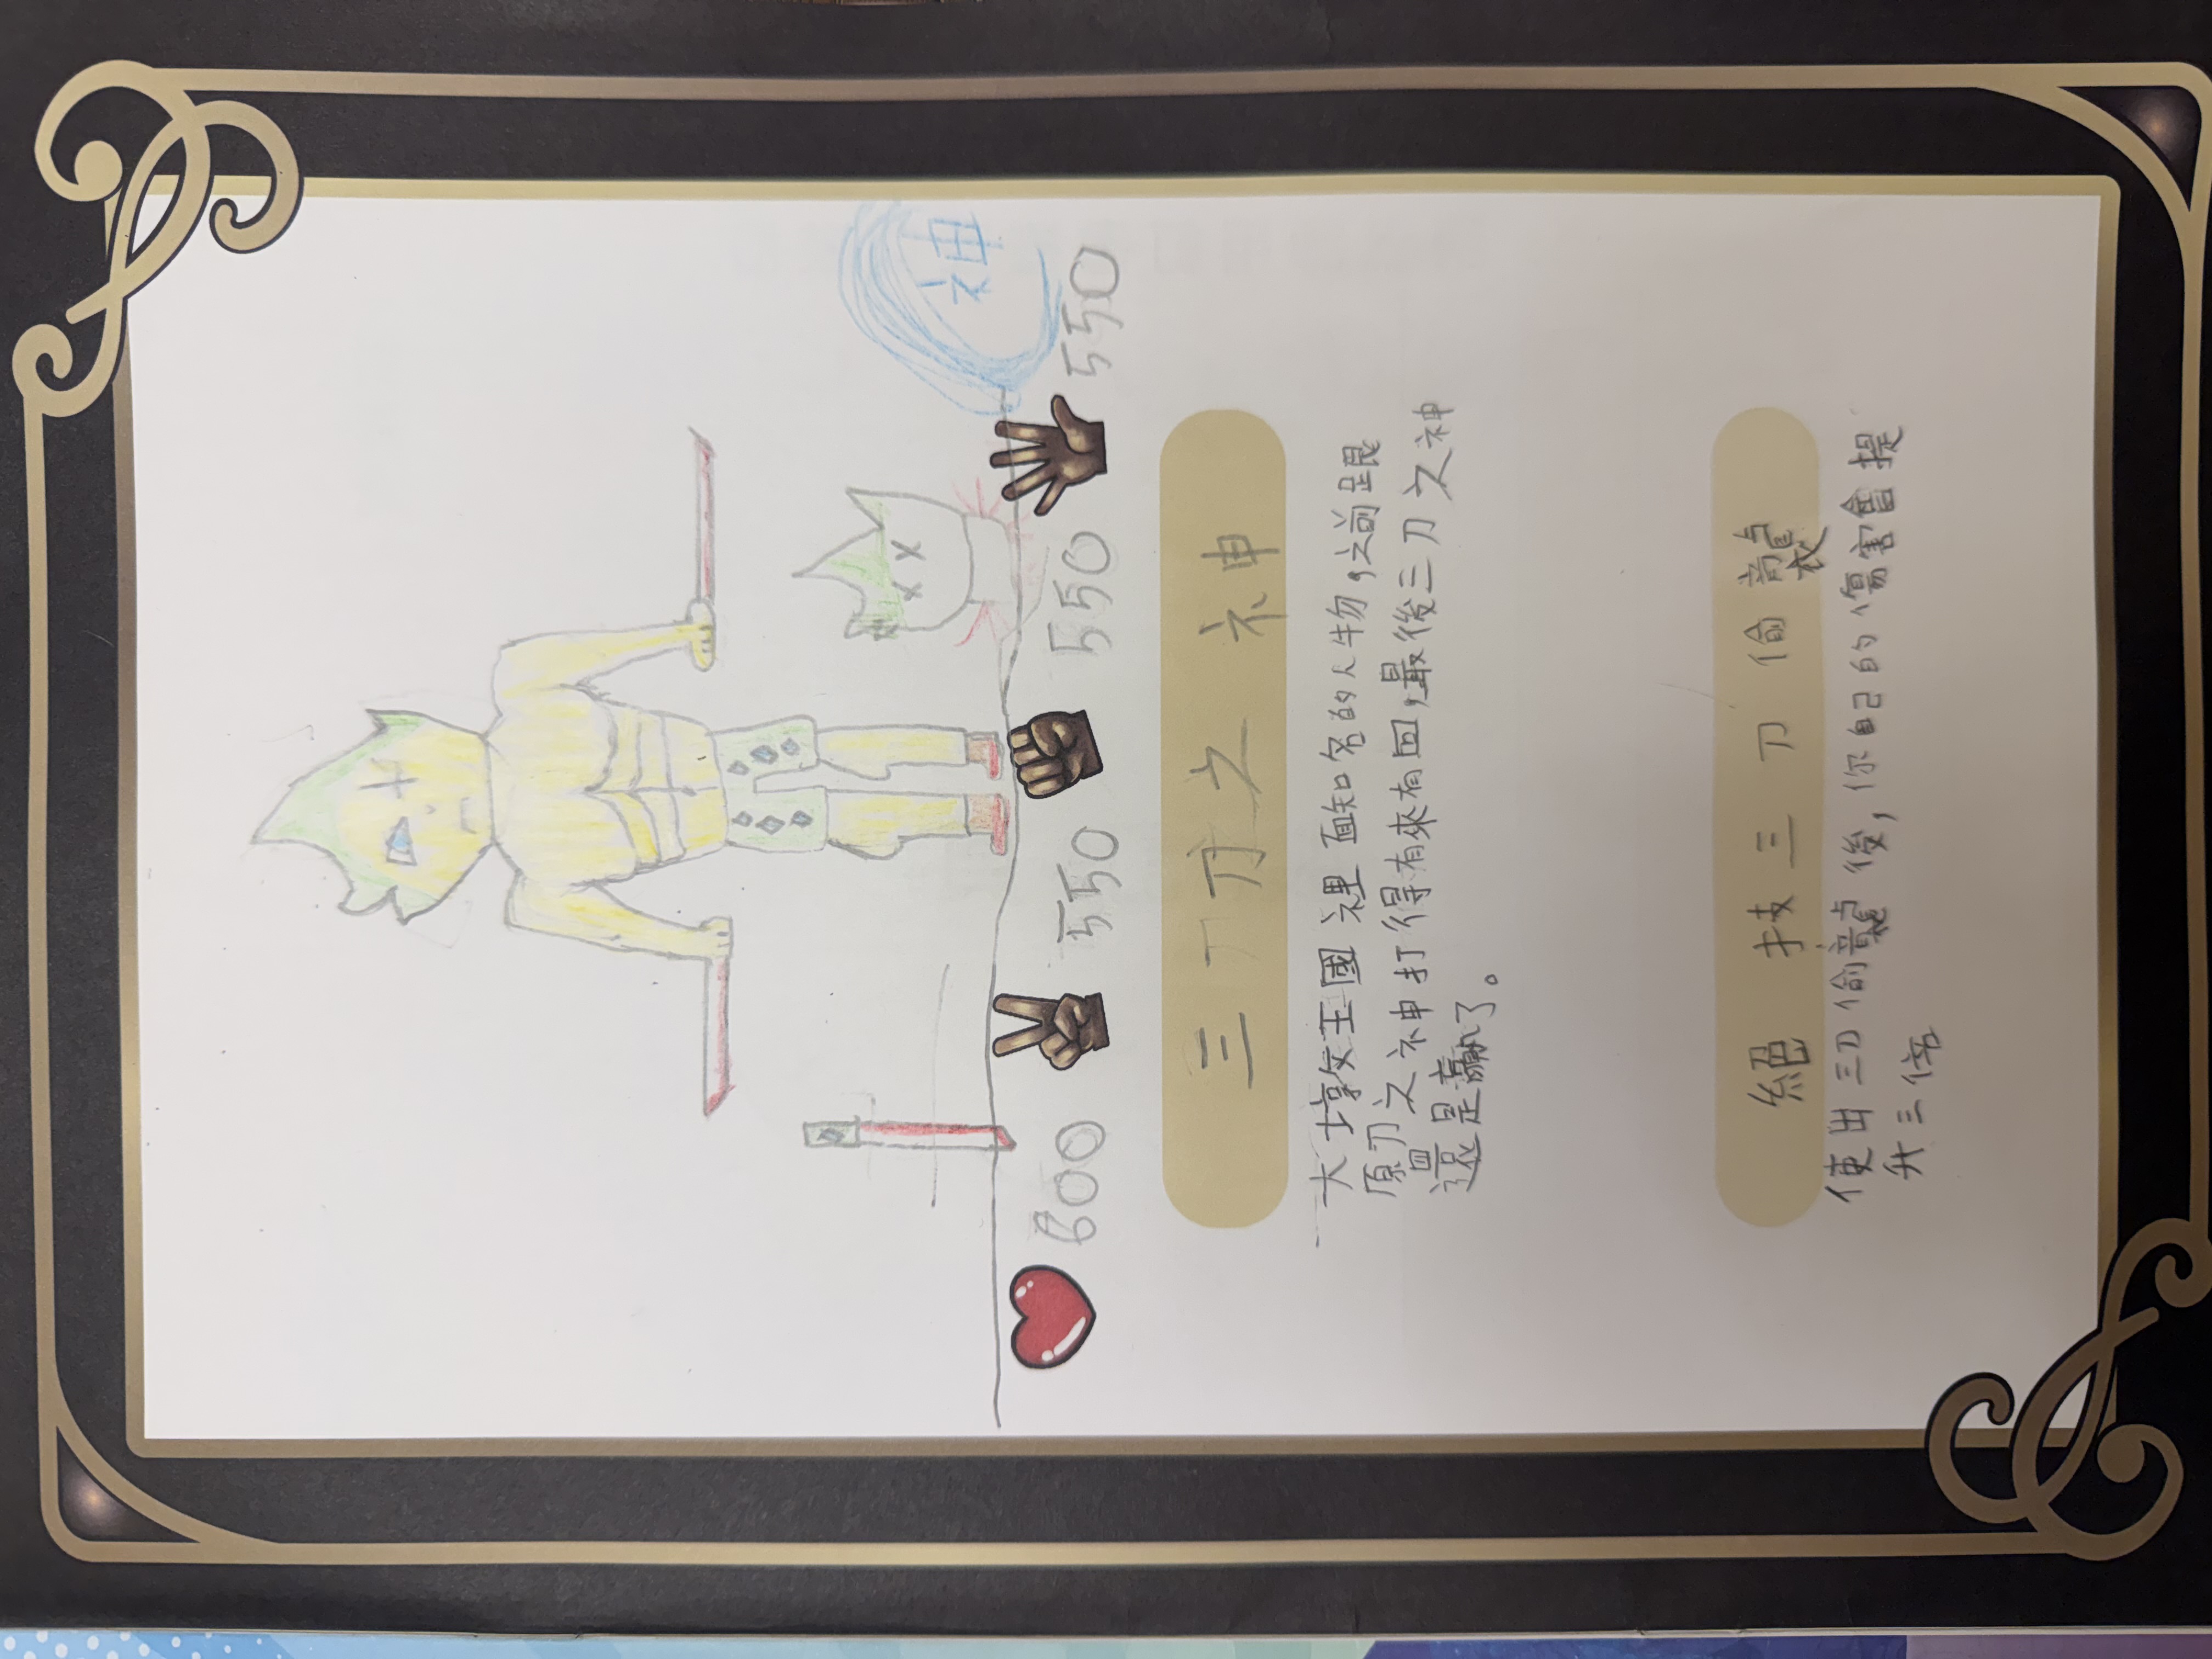 神
600 550 550 550
三刀之神
大墇女王國裡面知名的人物,之前跟
原刀之神打得有來有回,最後三刀之神
還是贏了。
絕技三刀偷襲
使出三刀偷襲後,你自己的傷害會提
升三倍